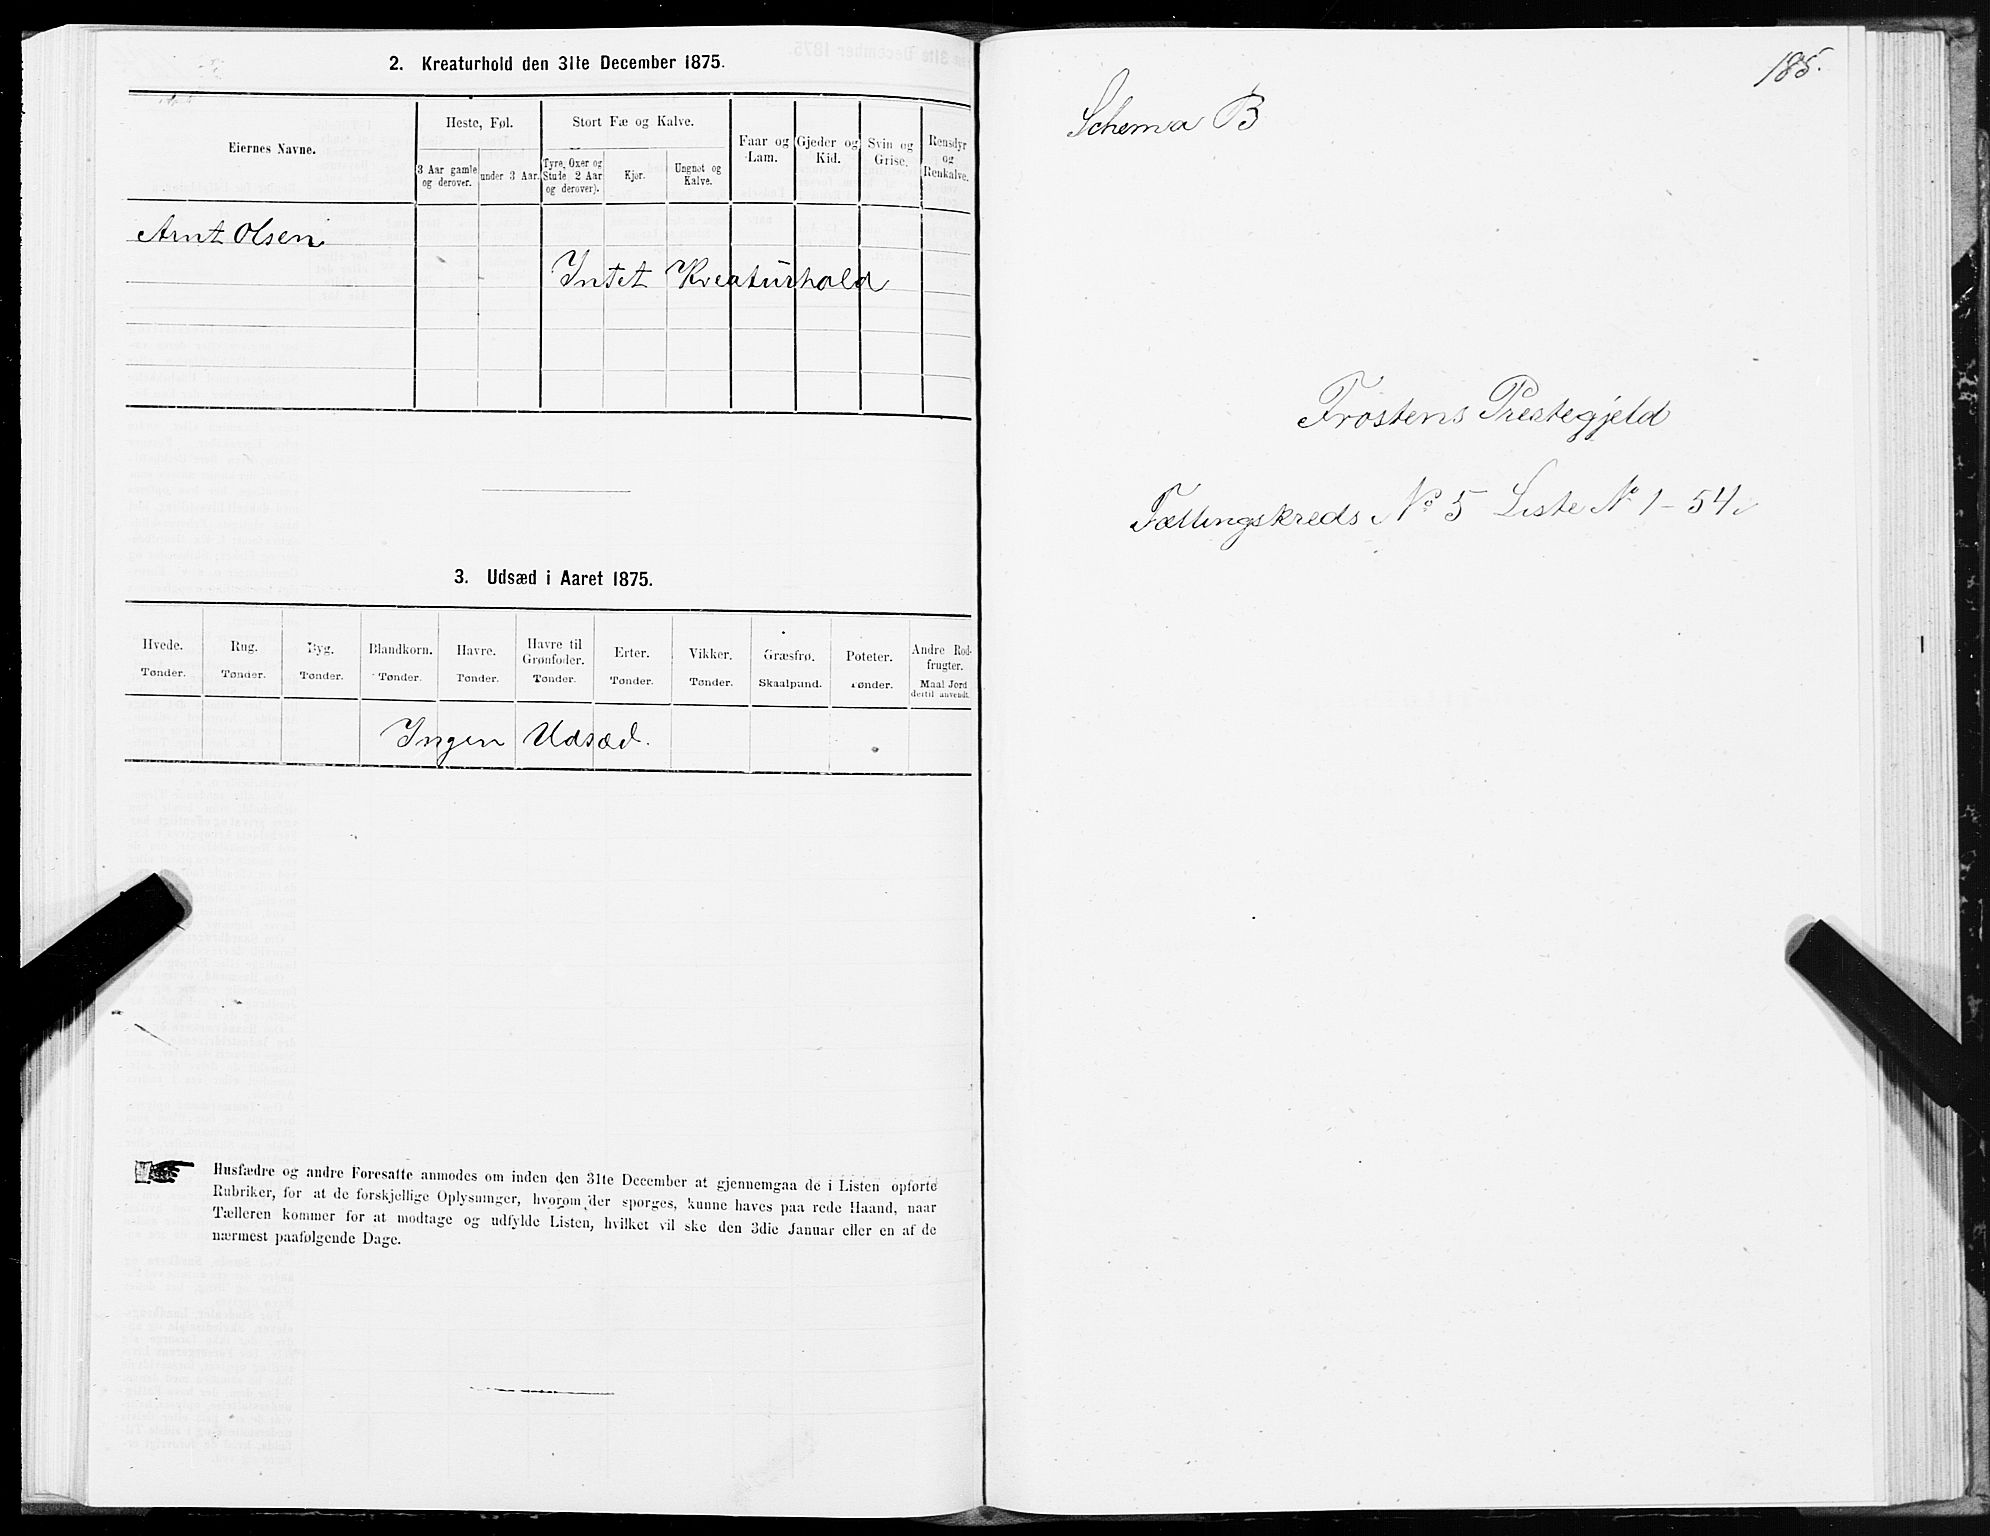 2. Kreaturhold den 31te December 1875.
Eiernes Navne.
Heste, Føl.
Stort Fæ og Kalve.
Faar og Lam.
Gjeder og Kid.
Svin og Grise.
Rensdyr og Renkalve.
3 Aar gamle og derover.
under 3 Aar.
Tyre, Oxer og Stude 2 Aar og derover).
Kjør.
Ungnøt og Kalve.
Arnt Olsen
Intet Kreaturhold
3. Udsæd i Aaret 1875.
Hvede. Tønder.
Rug. Tønder.
Byg. Tønder.
Blandkorn. Tønder.
Havre. Tønder.
Havre til Grønfoder. Tønder.
Erter. Tønder.
Vikker. Tønder.
Græsfrø. Skaalpund.
Poteter. Tønder.
Andre Rodfrugter. Maal Jord dertil anvendt.
Ingen Udsæd.
Husfædre og andre Foresatte anmodes om inden den 31te December at gjennemgaa de i Listen opførte
Rubriker, for at de forskjellige Oplysninger, hvorom der spørges, kunne haves paa rede Haand, naar
Tælleren kommer for at modtage og udfylde Listen, hvilket vil ske den 3die Januar eller en af de
nærmest paafølgende Dage.
185.
Schema B
Frostens Prestegjeld
Tællingskreds No 5 Liste No 1-54